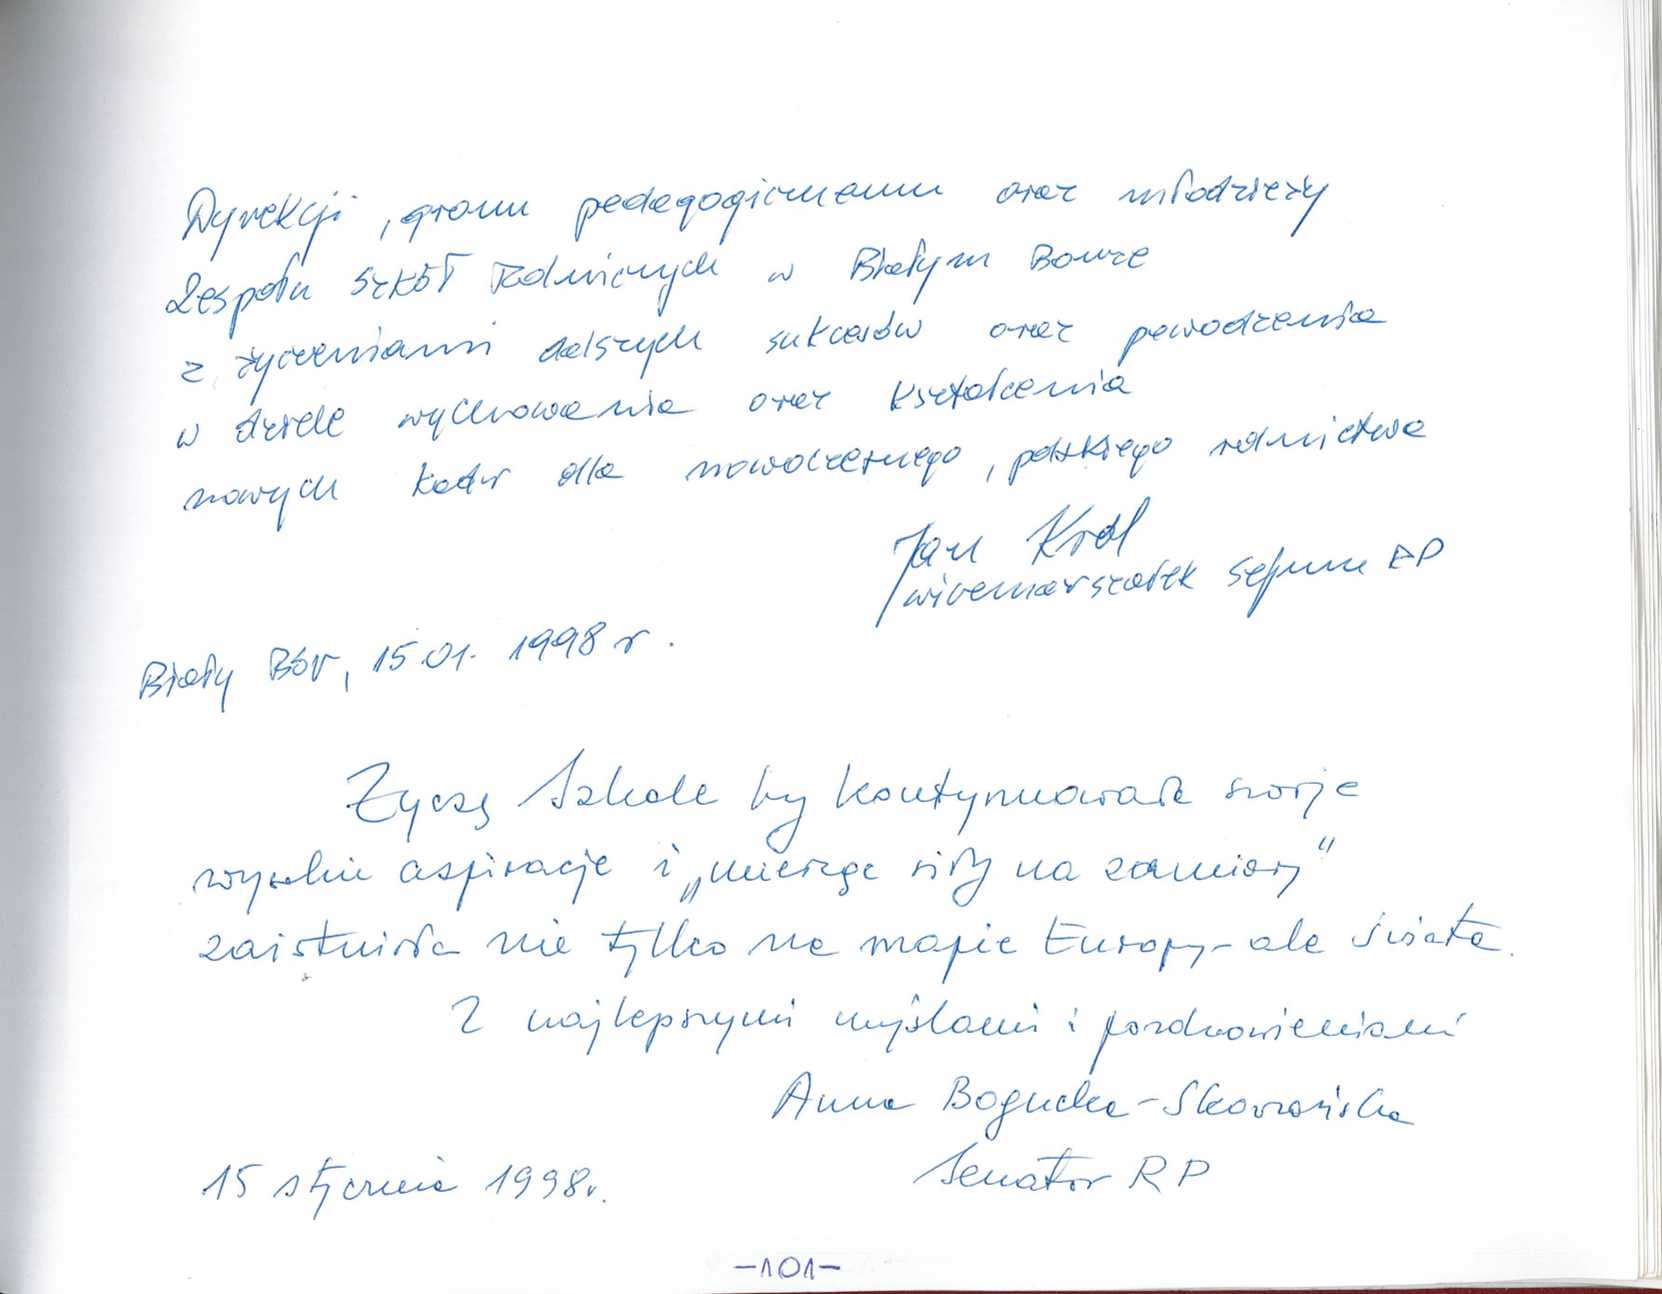 Dyrekcji, gronu pedagogicznemu oraz młodzieży
Zespołu Szkół Rolniczych w Białym Borze
z życzeniami dalszych sukcesów oraz powodzenia
w dziele wychowania oraz kształcenia
nowych kadr dla nowoczesnego, polskiego rolnictwa
Jan Król
wicemarszałek Sejmu RP
Biały Bór, 15.01.1998 r.
Życzę Szkole by kontynuowała swoje
wysokie aspiracje i „mierząc siły na zamiary"
zaistniała nie tylko na mapie Europy - ale świata.
Z najlepszymi myślami i pozdrowieniami
Anna Bogucka-Skowrońska
Senator RP
15 stycznia 1998r.
-101-